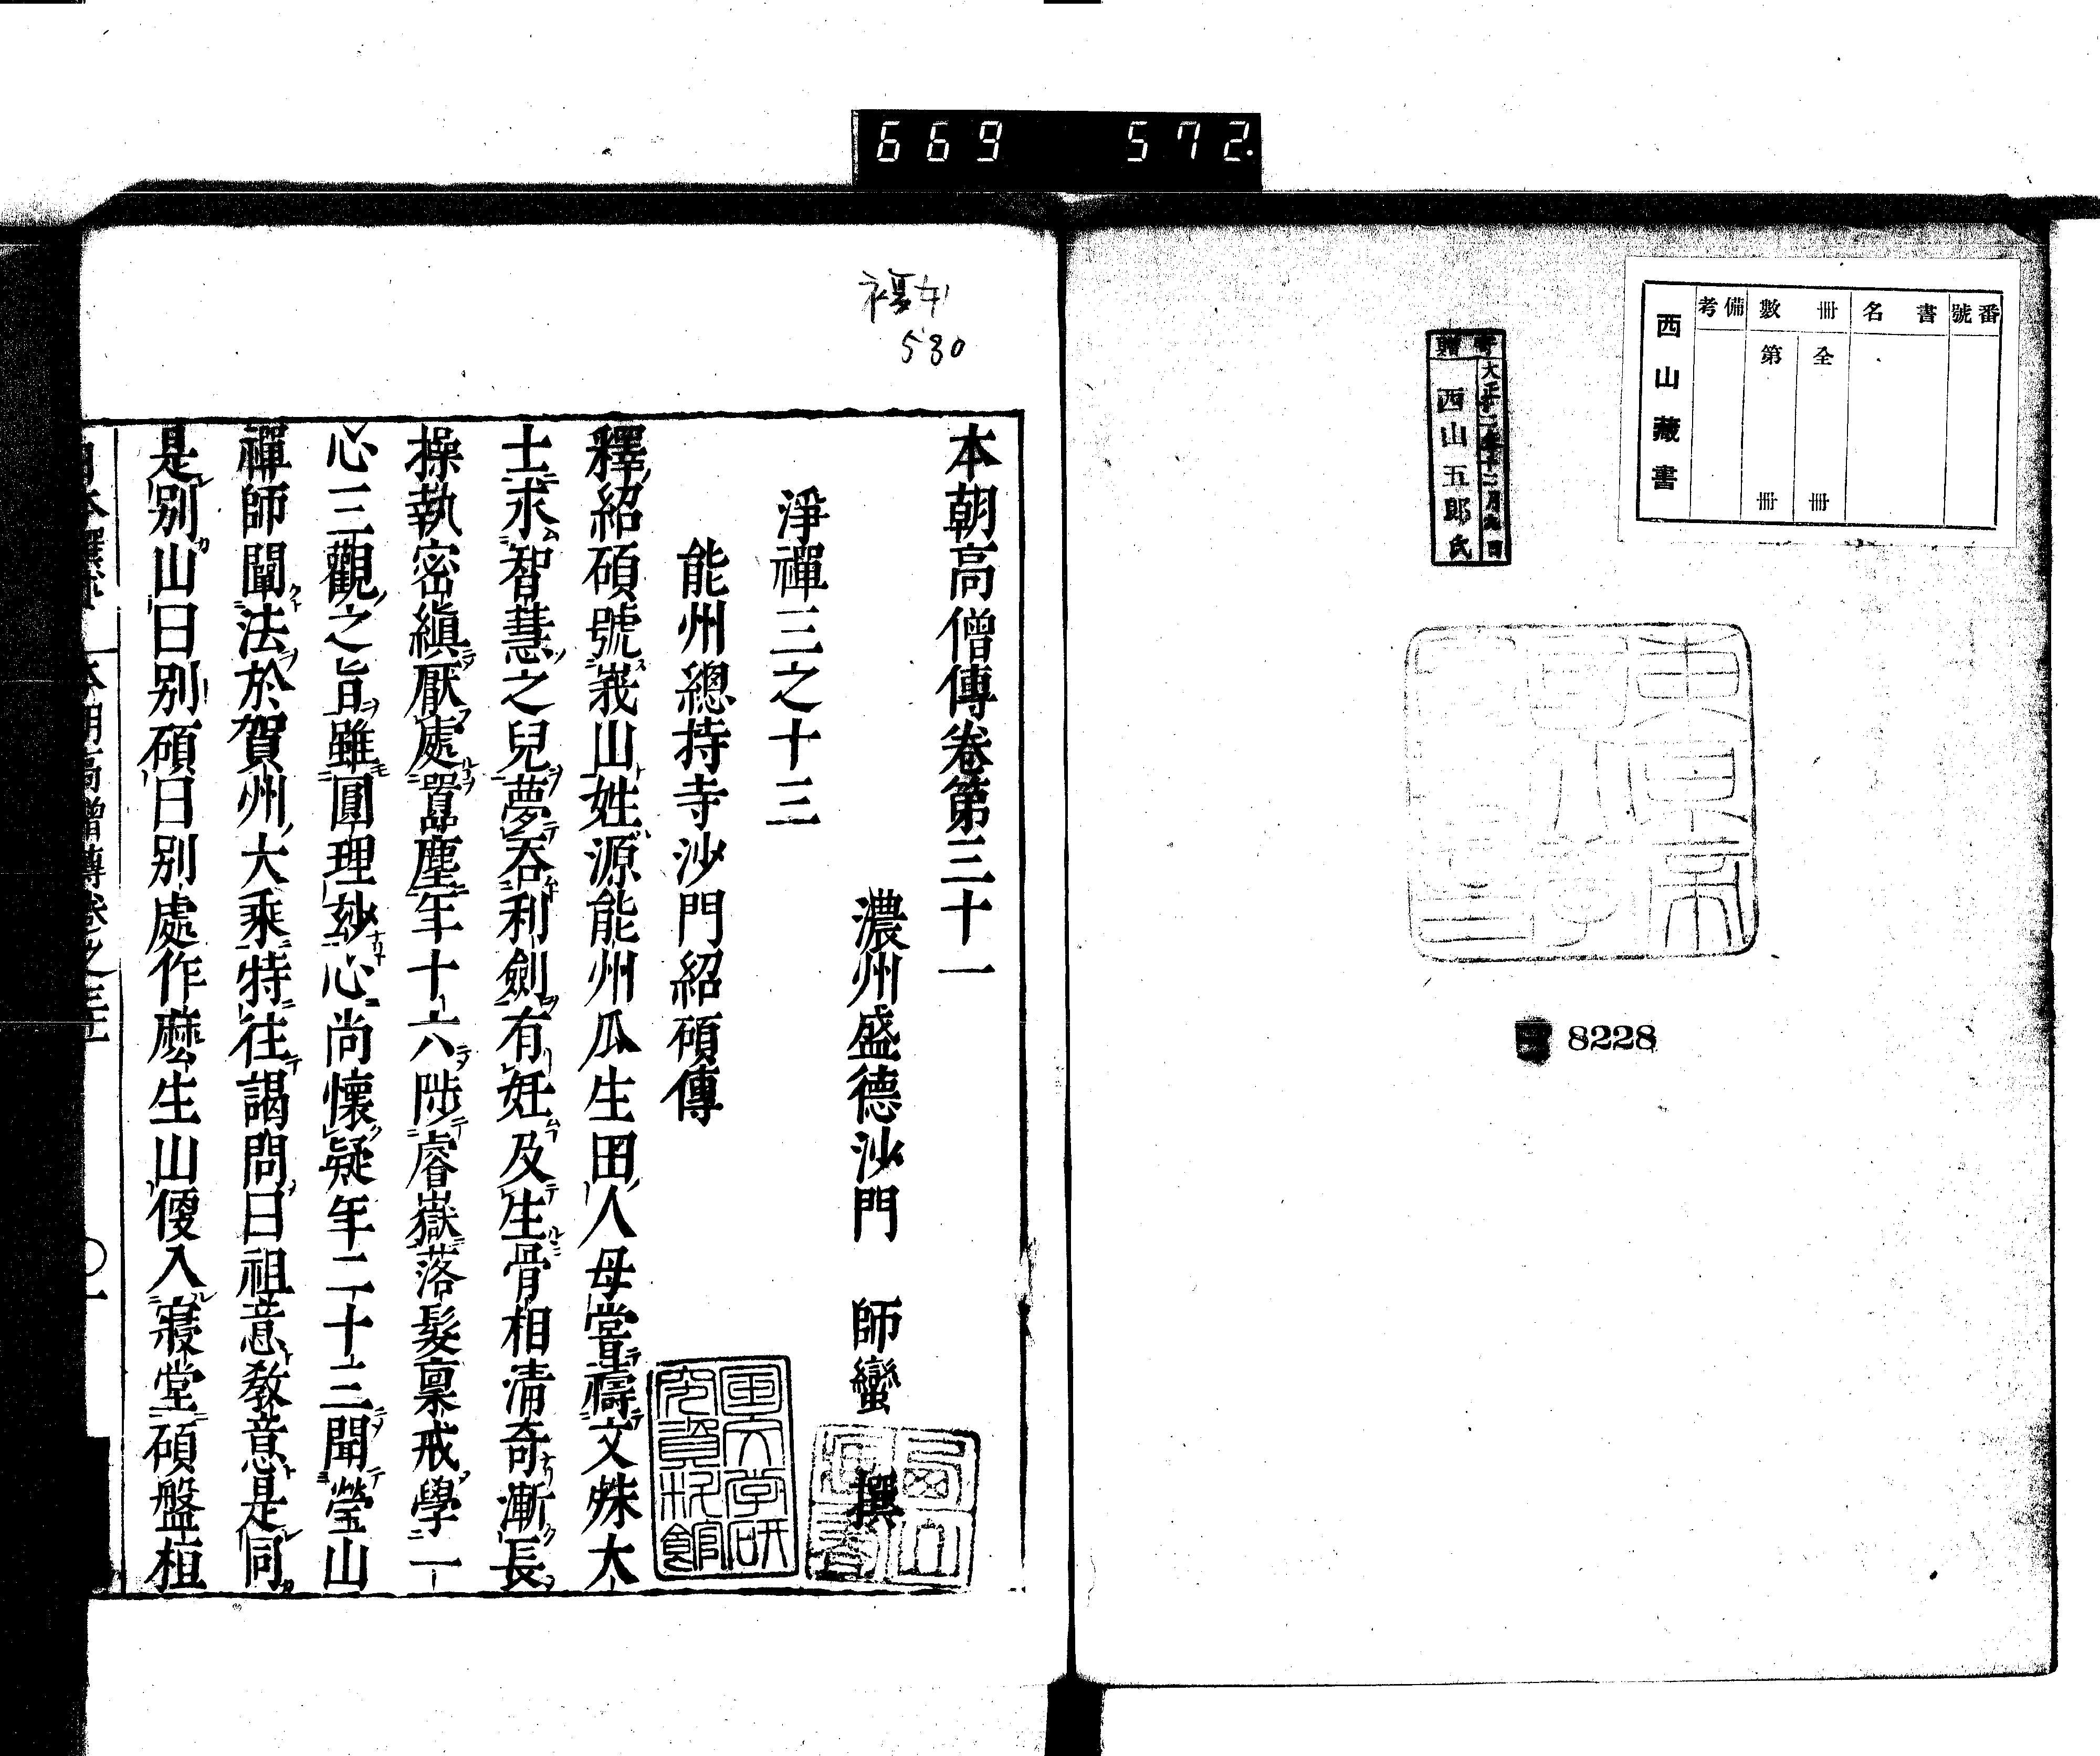 669 572.
番號
書名
冊數
全 冊
第 冊
備考
西山藏書
寄贈
大正十二年十二月九日
西山五郎氏
8228
580
本朝高僧傳卷第三十一
濃州盛德沙門 師蠻 撰
淨禪三之十三
能州總持寺沙門紹碩傳
釋紹碩號峩山姓源能州瓜生田人母嘗禱文殊大
士求智慧之兒夢吞利劍有妊及生骨相淸奇漸長
操執密縝厭處囂塵年十六陟睿嶽落髮稟戒學一
心三觀之旨雖圓理玅心尚懷疑年二十三聞瑩山
禪師闡法於賀州大乘特往謁問曰祖意教意是同
是別山曰別碩曰別處作麽生山便入寢堂碩盤桓
本朝高僧傳卷之三十一
〇一